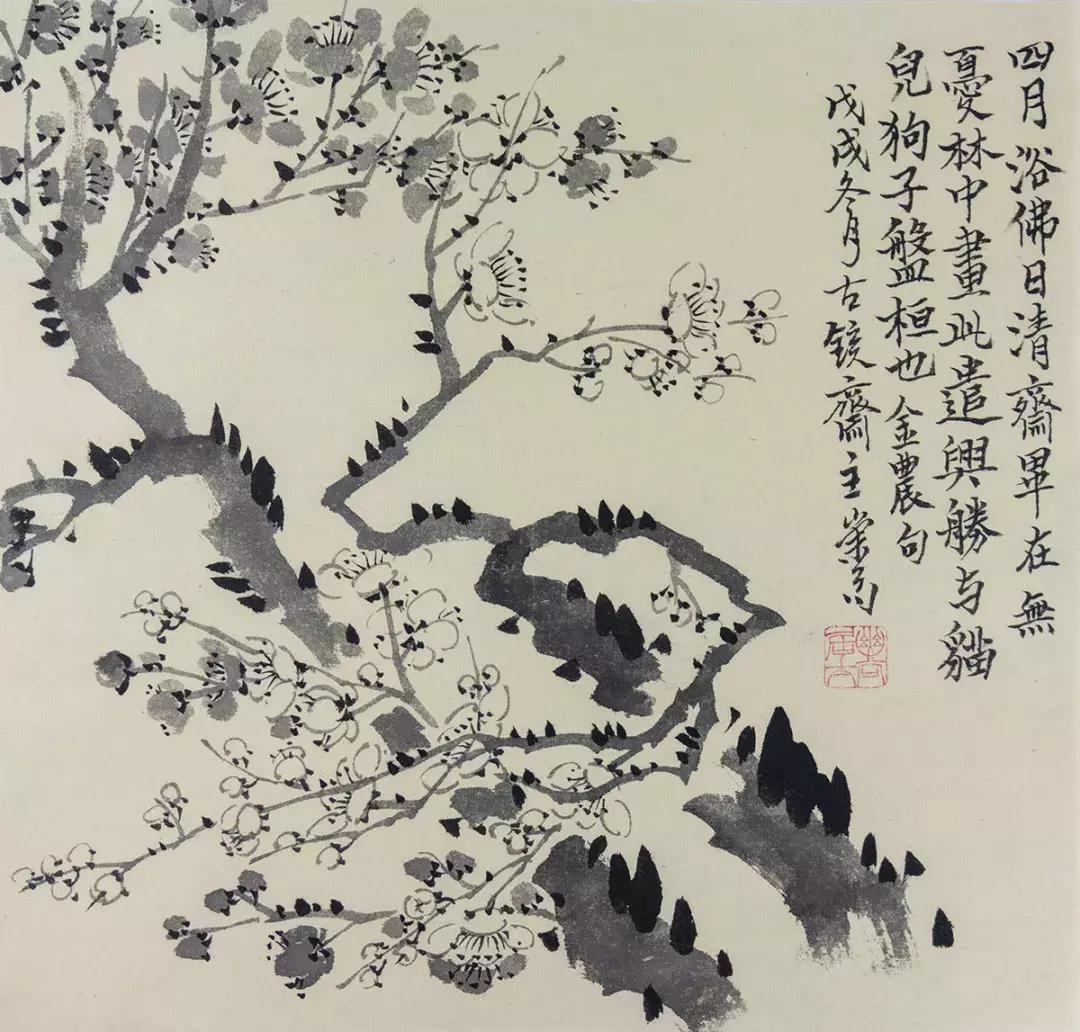 四月浴佛日清齋畢在無
憂林中畫此遣興勝与貓
兒狗子盤桓也 金農句
戊戌冬月古鏡齋主